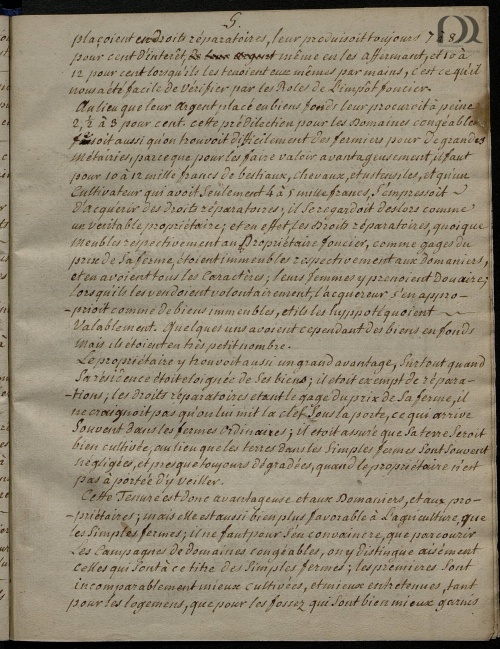 5.
plaçoient en droits réparatoires, leur produisoit toujours 7 à 8
pour cent d'interêt, même en les affermant, et 10 à
12 pour cent lorsqu'ils les tenoient eux mêmes par mains, c'est ce qu'il
nous a été facile de vérifier par les Roles de L'impôt foncier.
Au lieu que leur argent placé en biens fonds leur procuroit à peine
2, 2½ à 3 pour cent. cette prédilection pour les Domaines congéables
faisoit aussi qu'on trouvoit difficilement des fermiers pour de grandes
Métairies, parce que pour les faire valoir avantageusement, il faut
pour 10 à 12 mille francs de bestiaux, chevaux, et ustensiles, et qu'un
Cultivateur qui avoit seulement 4 à 5 mille francs S'empressoit
d'acquerir des droits réparatoires; il se regardoit deslors comme
un veritable propriétaire; et en effet, les droits réparatoires, quoique
meubles respectivement au Propriétaire foncier, comme gages du
prix de Sa ferme, étoient immeubles respectivement aux domaniers,
et en avoient tous les Caractères; leurs femmes y prenoient Douaire;
lorsqu'ils les vendoient volontairement, l'acquereur S'en appro-
-prioit comme de biens immeubles, et ils les hyppotéquoient
Valablement. Quelques uns avoient cependant des biens en fonds
mais ils étoient en très petit nombre.
Le propriétaire y trouvoit aussi un grand avantage, Surtout quand
Sa résidence étoit eloignée de Ses biens; il étoit exempt de répara-
-tions; les droits réparatoires etant le gage du prix de Sa ferme, il
ne craignoit pas qu'on lui mit la clef Sous la porte, ce qui arrive
Souvent dans les fermes ordinaires; il étoit assuré que Sa terre Seroit
bien cultivée, au lieu que les terres dans les Simples fermes Sont Souvent
négligées, et presque toujours dégradées, quand le propriétaire n'est
pas à portée d'y veiller.
Cette Tenure est donc avantageuse et aux Domaniers, et aux pro-
-priétaires; mais elle est aussi bien plus favorable à L'agriculture, que
les Simples fermes; il ne faut pour S'en convaincre, que parcourir
Les Campagnes de domaines congéables, on y distingue aisément
celles qui Sont à ce titre des Simples fermes; les premières Sont
incomparablement mieux cultivées, et mieux entretenues, tant
pour les logemens, que pour les fossez qui Sont bien mieux garnis